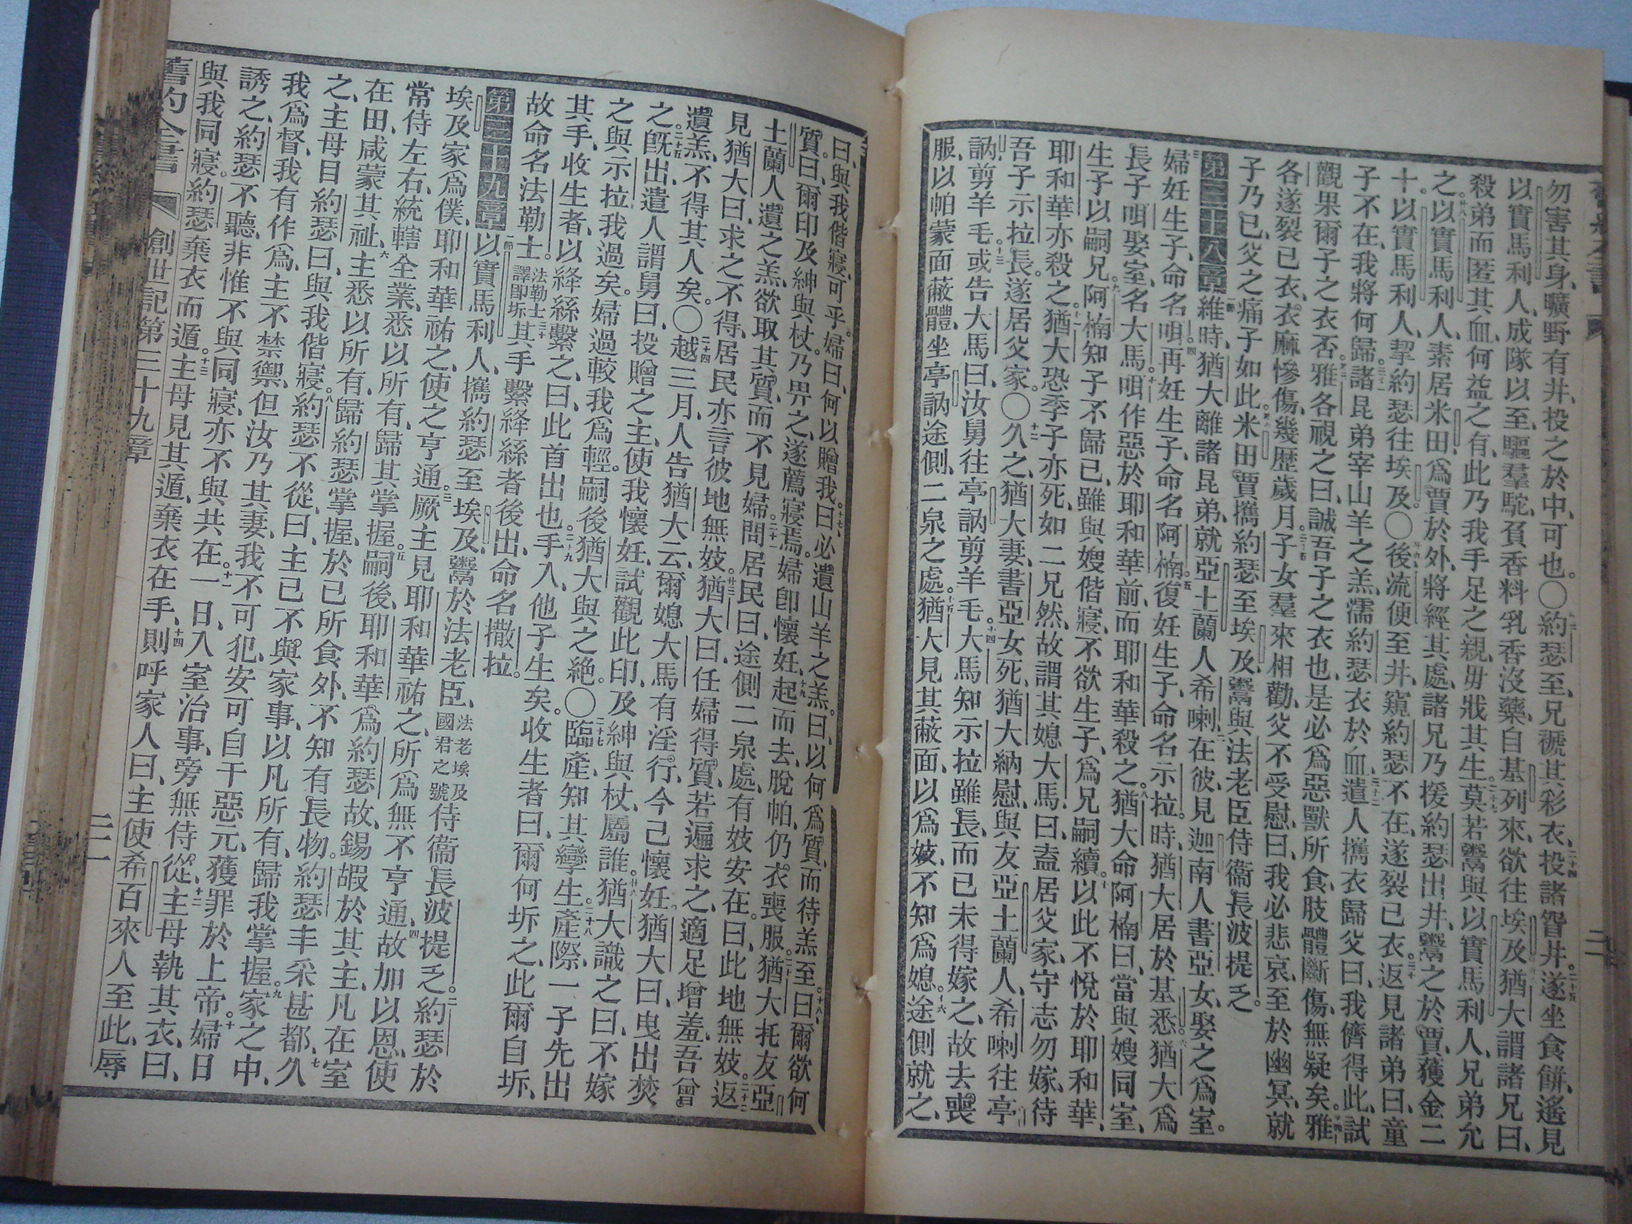 勿害其身、曠野有井、投之於中、可也。〇約瑟至、兄褫其彩衣、投諸眢井、遂坐食餅、遙見
以實馬利人、成隊以至、驅羣駝、負香料乳香沒藥、自基列來、欲往埃及、猶大謂諸兄曰、
殺弟而匿其血、何益之有、此乃我手足之親、毋戕其生、莫若鬻與以實馬利人、兄弟允
之、以實馬利人、素居米田、爲賈於外、將經其處、諸兄乃援約瑟出井、鬻之於賈、獲金二
十、以實馬利人、挈約瑟往埃及、〇後流便至井、窺約瑟不在、遂裂己衣、返見諸弟曰、童
子不在、我將何歸、諸昆弟宰山羊之羔、濡約瑟衣於血、遣人攜衣歸父曰、我儕得此、試
觀果爾子之衣否、雅各視之曰、誠吾子之衣也、是必爲惡獸所食、肢體斷傷、無疑矣、雅
各遂裂己衣、衣麻慘傷、幾歷歲月、子女羣來相勸、父不受慰、曰、我必悲哀、至於幽冥、就
子乃已、父之痛子如此、米田賈攜約瑟至埃及、鬻與法老臣侍衞長波提乏。
第三十八章 維時、猶大離諸昆弟、就亞土蘭人希喇、在彼見迦南人書亞女、娶之爲室。
婦妊生子、命名咡、再妊生子、命名阿楠、復妊生子、命名示拉、時、猶大居於基悉、猶大爲
長子咡娶室、名大馬、咡作惡於耶和華前、而耶和華殺之、猶大命阿楠曰、當與嫂同室、
生子以嗣兄、阿楠知子不歸己、雖與嫂偕寢、不欲生子、爲兄嗣續、以此不悅於耶和華、
耶和華亦殺之、猶大恐季子亦死、如二兄然、故謂其媳大馬曰、盍居父家、守志勿嫁、待
吾子示拉長、遂居父家。〇久之、猶大妻、書亞女死、猶大納慰、與友亞土蘭人希喇往亭
訥、剪羊毛、或告大馬曰、汝舅往亭訥剪羊毛、大馬知示拉雖長、而己未得嫁之、故去喪
服、以帕蒙面蔽體、坐亭訥途側、二泉之處、猶大見其蔽面、以爲妓、不知爲媳、途側就之、
曰、與我偕寢、可乎、婦曰、何以贈我、曰、必遺山羊之羔、曰、以何爲質、而待羔至、曰、爾欲何
質、曰、爾印及紳與杖、乃畀之、遂薦寢焉、婦卽懷妊、起而去、脫帕、仍衣喪服、猶大托友亞
土蘭人、遺之羔、欲取其質、而不見婦、問居民曰、途側二泉處、有妓安在、曰、此地無妓、返
見猶大曰、求之不得、居民亦言彼地無妓、猶大曰、任婦得質、若遍求之、適足增羞、吾曾
遺羔、不得其人矣。〇越三月、人告猶大云、爾媳大馬有淫行、今已懷妊、猶大曰、曳出焚
之、旣出、遣人謂舅曰、投贈之主、使我懷妊、試觀此印、及紳與杖、屬誰、猶大識之曰、不嫁
之與示拉、我過矣、婦過較我爲輕、嗣後猶大與之絕。〇臨產、知其孿生、產際、一子先出
其手、收生者、以絳絲繫之曰、此首出也、手入、他子生矣、收生者曰、爾何坼之、此爾自坼、
故命名法勒士。法勒士譯卽坼 其手繫絳絲者後出、命名撒拉。
第三十九章 以實馬利人、攜約瑟至埃及、鬻於法老臣、法老埃及國君之號 侍衞長波提乏、約瑟於
埃及家爲僕、耶和華祐之、使之亨通、厥主見耶和華祐之、所爲無不亨通、故加以恩、使
常侍左右、統轄全業、悉以所有、歸其掌握、嗣後耶和華、爲約瑟故、錫嘏於其主、凡在室
在田、咸蒙其祉、主悉以所有、歸約瑟掌握、於己所食外、不知有長物、約瑟丰采甚都、久
之、主母目約瑟曰、與我偕寢、約瑟不從、曰、主已不與家事、以凡所有、歸我掌握、家之中、
我爲督、我有作爲、主不禁禦、但汝乃其妻、我不可犯、安可自干惡元、獲罪於上帝、婦日
誘之、約瑟不聽、非惟不與同寢、亦不與共在、一日、入室治事、旁無侍從、主母執其衣、曰、
與我同寢、約瑟棄衣而遁、主母見其遁、棄衣在手、則呼家人曰、主使希百來人至此、辱
舊約全書 創世記第三十九章 二一